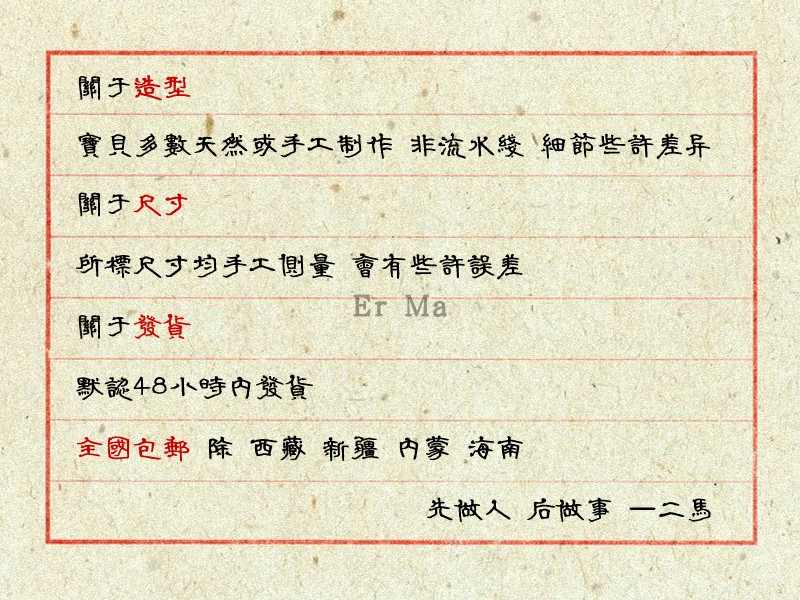 關于造型
寶貝多數天然或手工制作 非流水綫 細節些許差异
關于尺寸
所標尺寸均手工測量 會有些許誤差
Er Ma
關于發貨
默認48小時內發貨
全國包郵 除 西藏 新疆 內蒙 海南
先做人 后做事 一二馬